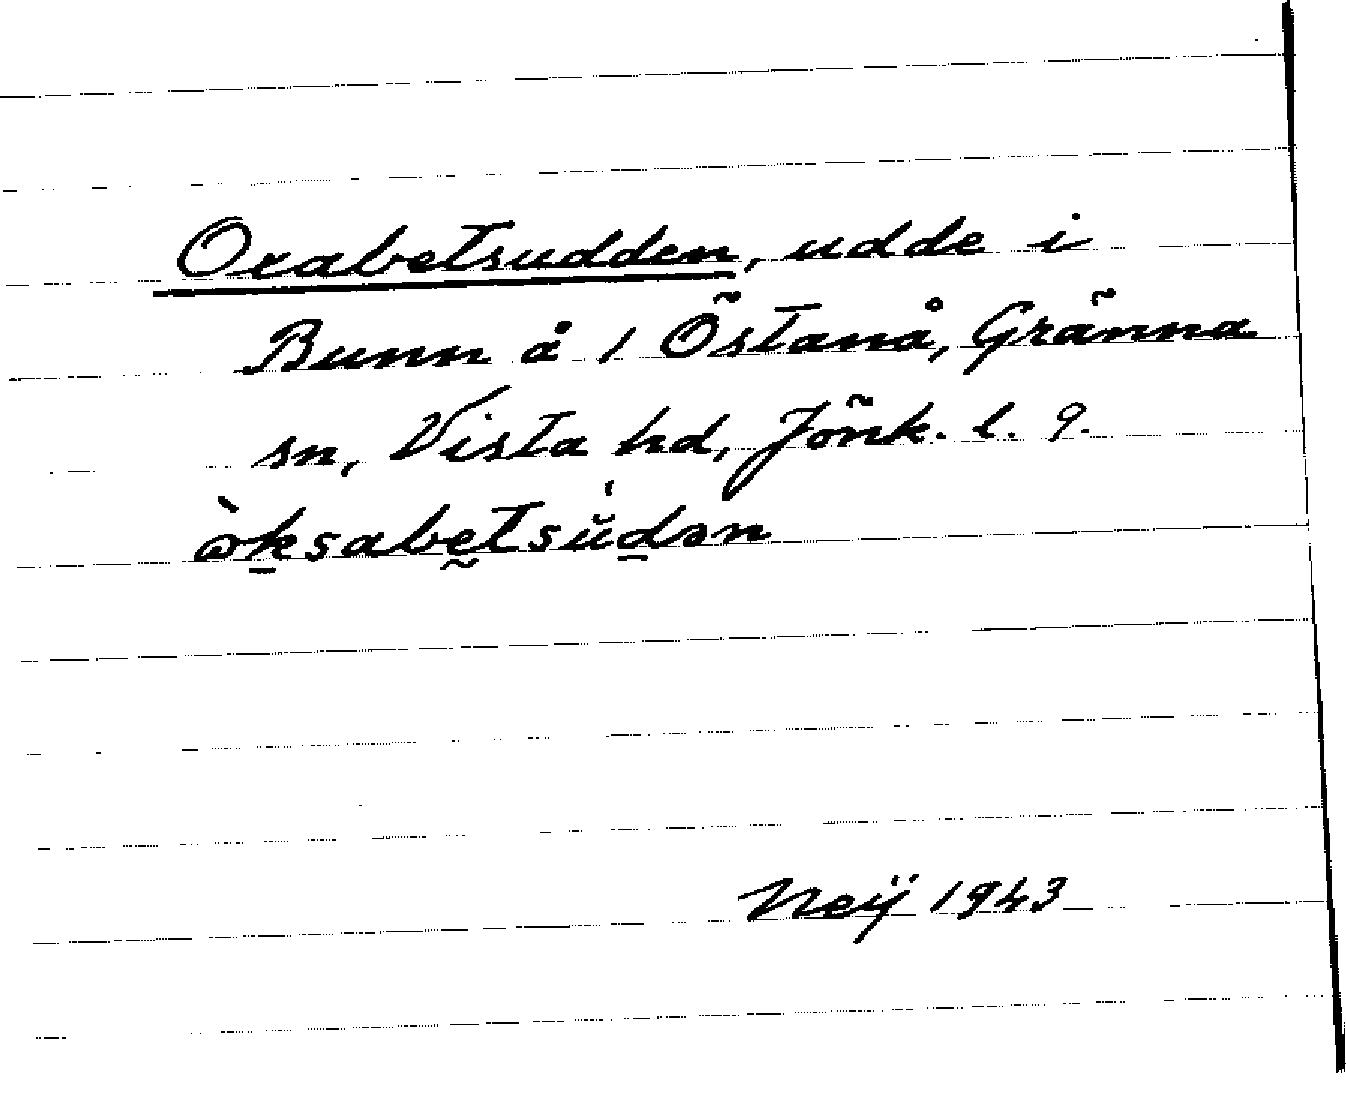 Oxabetsudden, udde i
Bunn å 1 Östanå, Gränna
sn, Vista hd, Jönk. l. 9.
òksabetsŭdən
Neij 1943